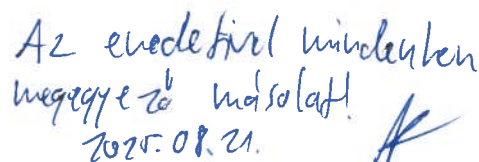 Az eredetivel mindenben
megegyező másolat!
2025.08.21.